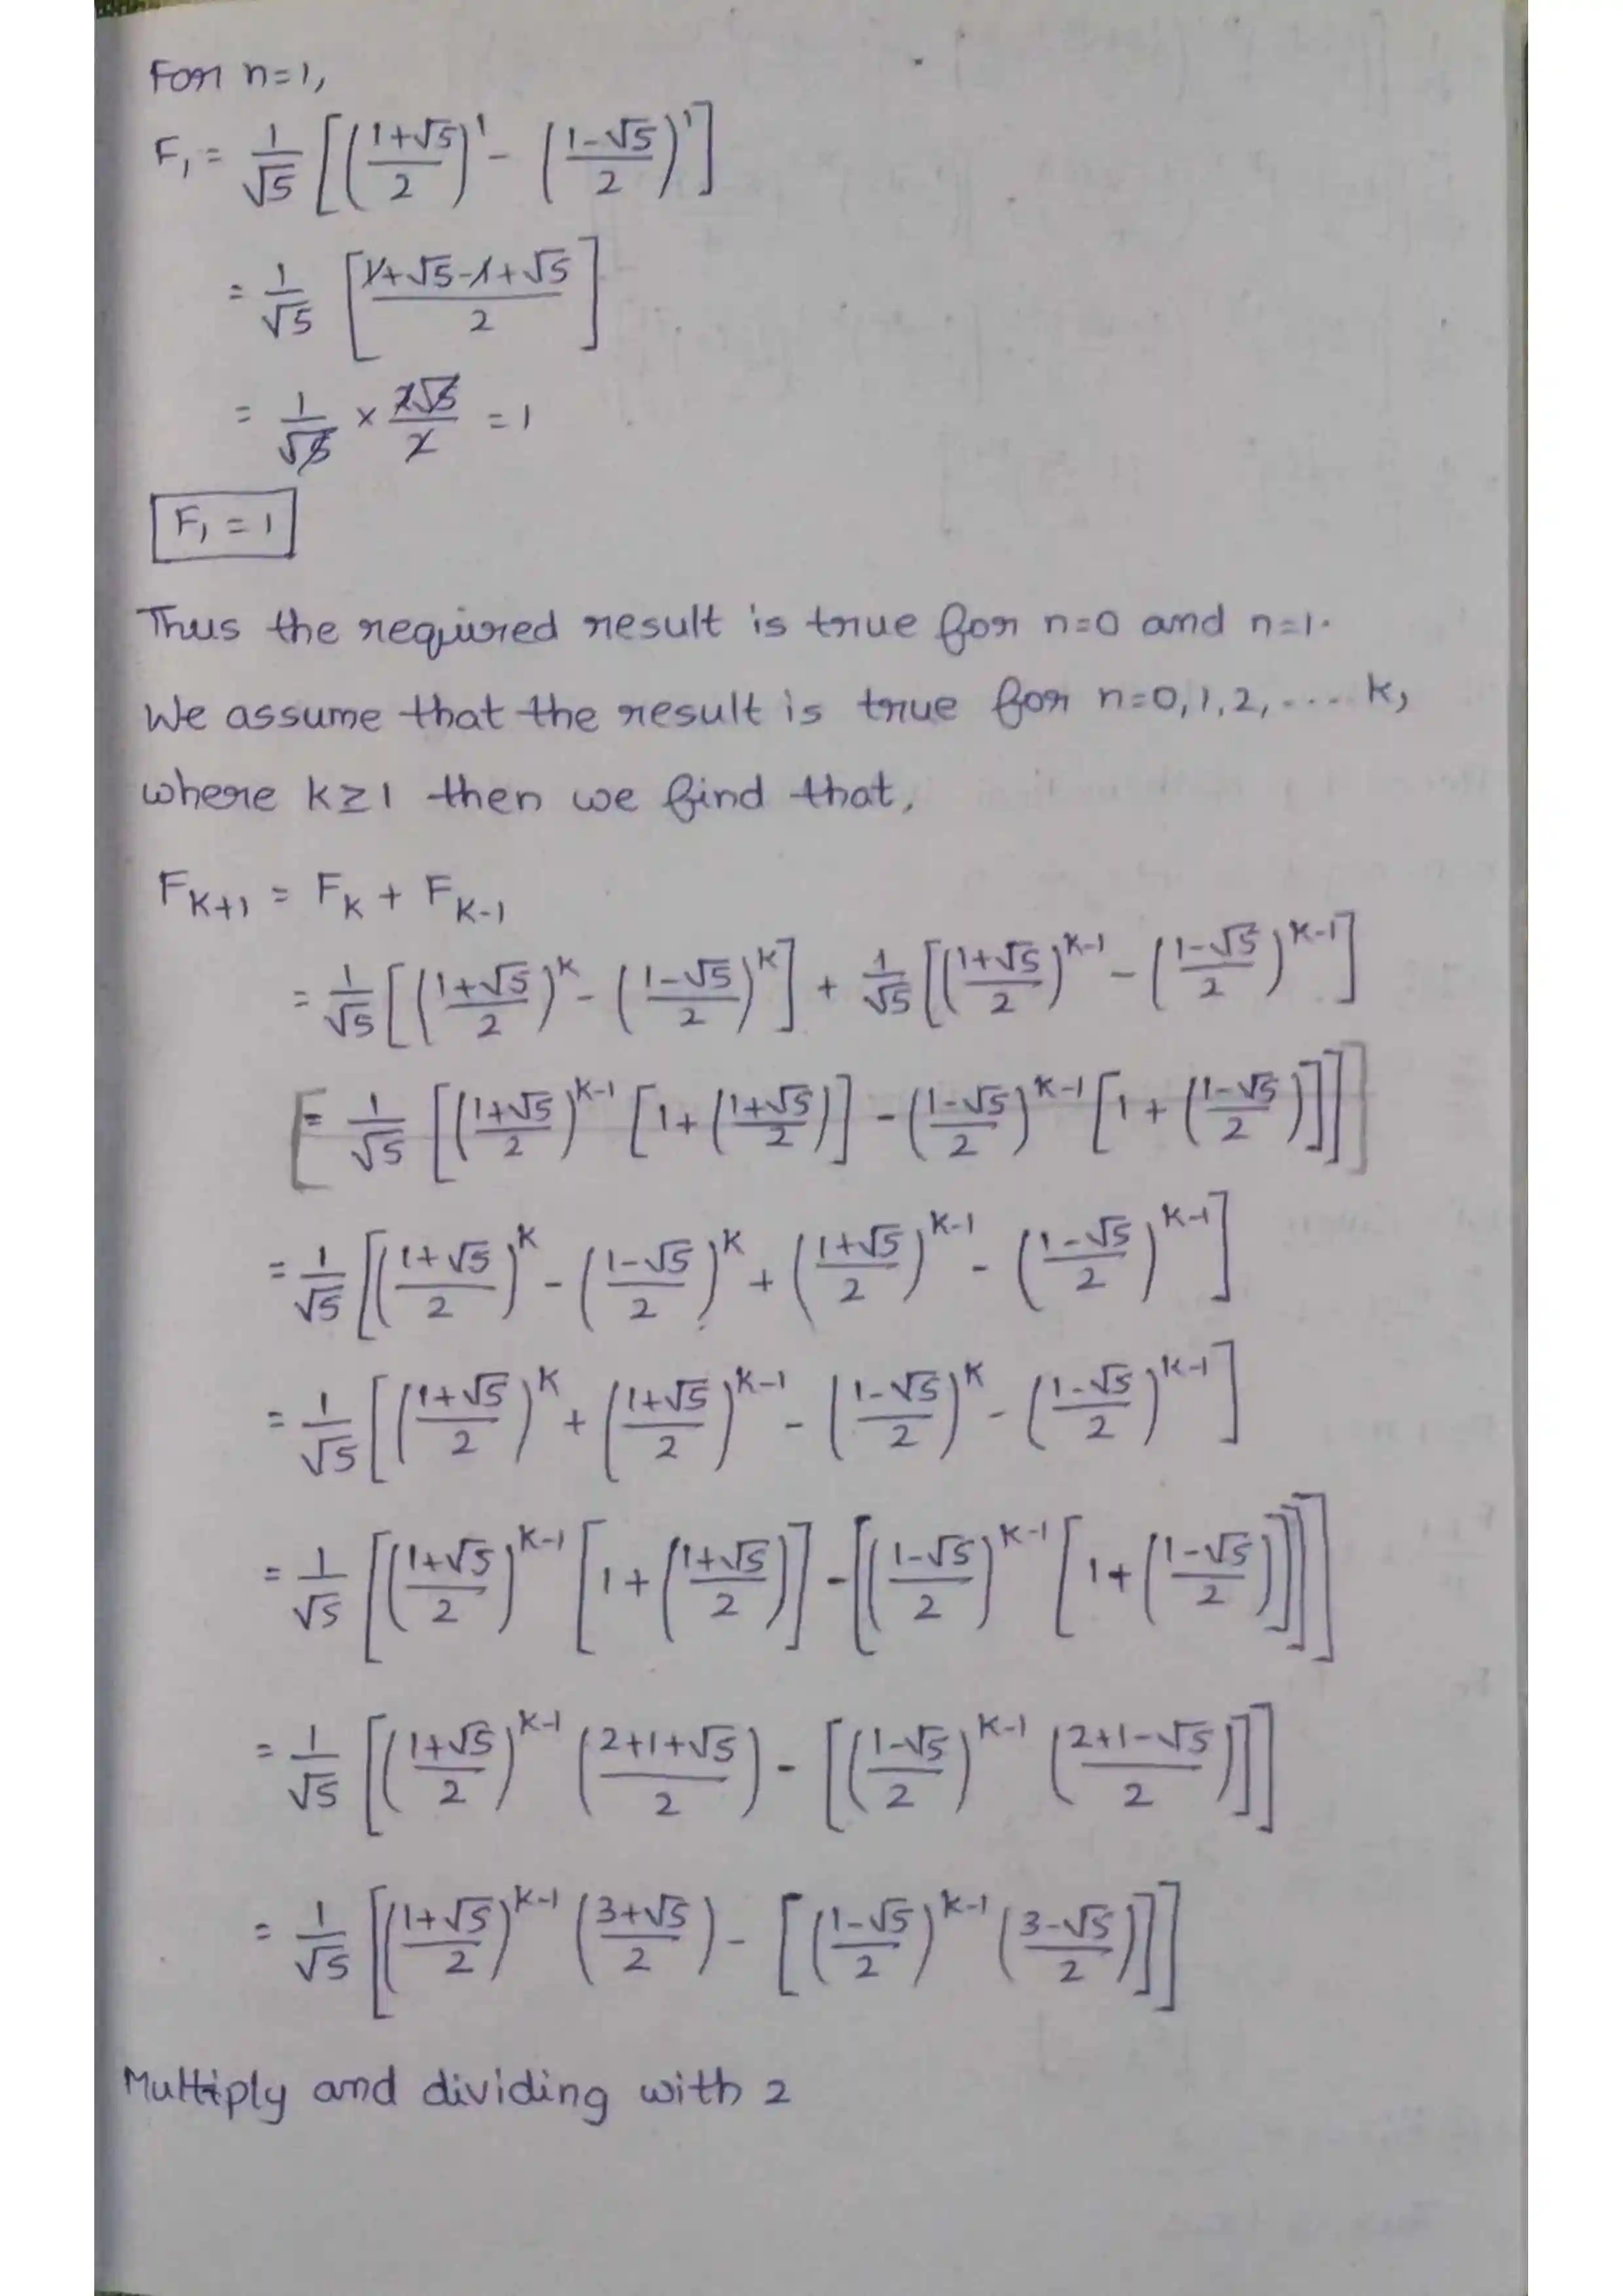 For n=1,
F₁ = 1/√5 [((1+√5)/2)¹ - ((1-√5)/2)¹]
= 1/√5 [(1+√5-1+√5)/2]
= 1/√5 × 2√5/2 = 1
F₁ = 1
Thus the required result is true for n=0 and n=1.
We assume that the result is true for n=0,1,2,....k,
where k≥1 then we find that,
F_{K+1} = F_K + F_{K-1}
= 1/√5 [((1+√5)/2)^K - ((1-√5)/2)^K] + 1/√5 [((1+√5)/2)^{K-1} - ((1-√5)/2)^{K-1}]
[= 1/√5 [((1+√5)/2)^{K-1} [1+((1+√5)/2)] - ((1-√5)/2)^{K-1} [1+((1-√5)/2)]]]
= 1/√5 [((1+√5)/2)^K - ((1-√5)/2)^K + ((1+√5)/2)^{K-1} - ((1-√5)/2)^{K-1}]
= 1/√5 [((1+√5)/2)^K + ((1+√5)/2)^{K-1} - ((1-√5)/2)^K - ((1-√5)/2)^{K-1}]
= 1/√5 [((1+√5)/2)^{K-1} [1+((1+√5)/2)] - [((1-√5)/2)^{K-1} [1+((1-√5)/2)]]]
= 1/√5 [((1+√5)/2)^{K-1} ((2+1+√5)/2) - [((1-√5)/2)^{K-1} ((2+1-√5)/2)]]
= 1/√5 [((1+√5)/2)^{K-1} ((3+√5)/2) - [((1-√5)/2)^{K-1} ((3-√5)/2)]]
Multiply and dividing with 2